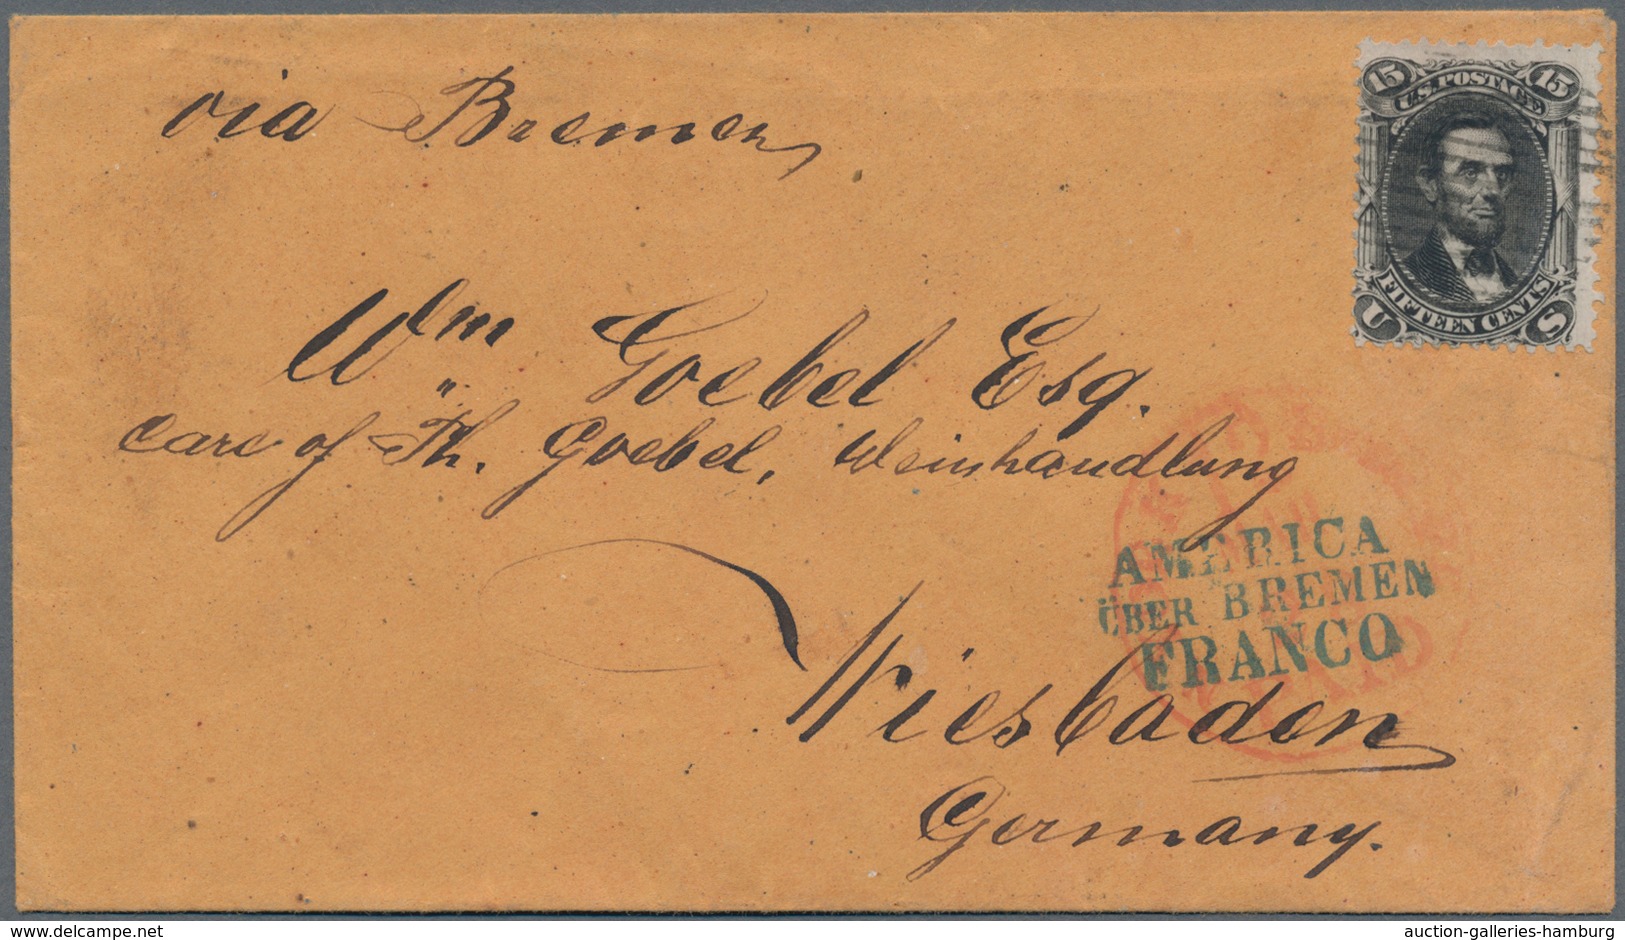 via Bremen
15 U.S. POSTAGE 15
FIFTEEN CENTS
U S
Wm Goebel Esq.
care of Th. Goebel, Weinhandlung
AMERICA
ÜBER BREMEN
FRANCO
Wiesbaden
Germany.
delcampe.net
auction-galleries-hamburg